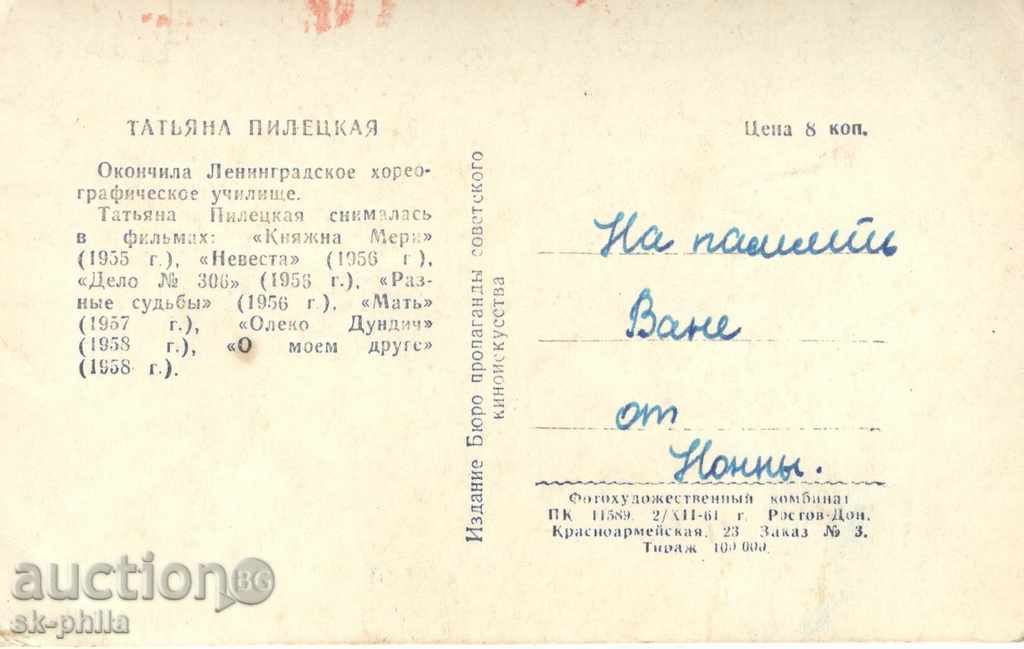 ТАТЬЯНА ПИЛЕЦКАЯ
Окончила Ленинградское хорео-
графическое училище.
Татьяна Пилецкая снималась
в фильмах: «Княжна Мери»
(1955 г.), «Невеста» (1956 г.),
«Дело № 306» (1956 г.), «Раз-
ные судьбы» (1956 г.), «Мать»
(1957 г.), «Олеко Дундич»
(1958 г.), «О моем друге»
(1958 г.).
Издание Бюро пропаганды советского
киноискусства
Цена 8 коп.
На память
Ване
от
Нонны.
Фотохудожественный комбинат
ПК 11589. 2/XII-61 г. Ростов-Дон.
Красноармейская, 23 Заказ № 3.
Тираж 100 000.
auctionBG
sk-philla